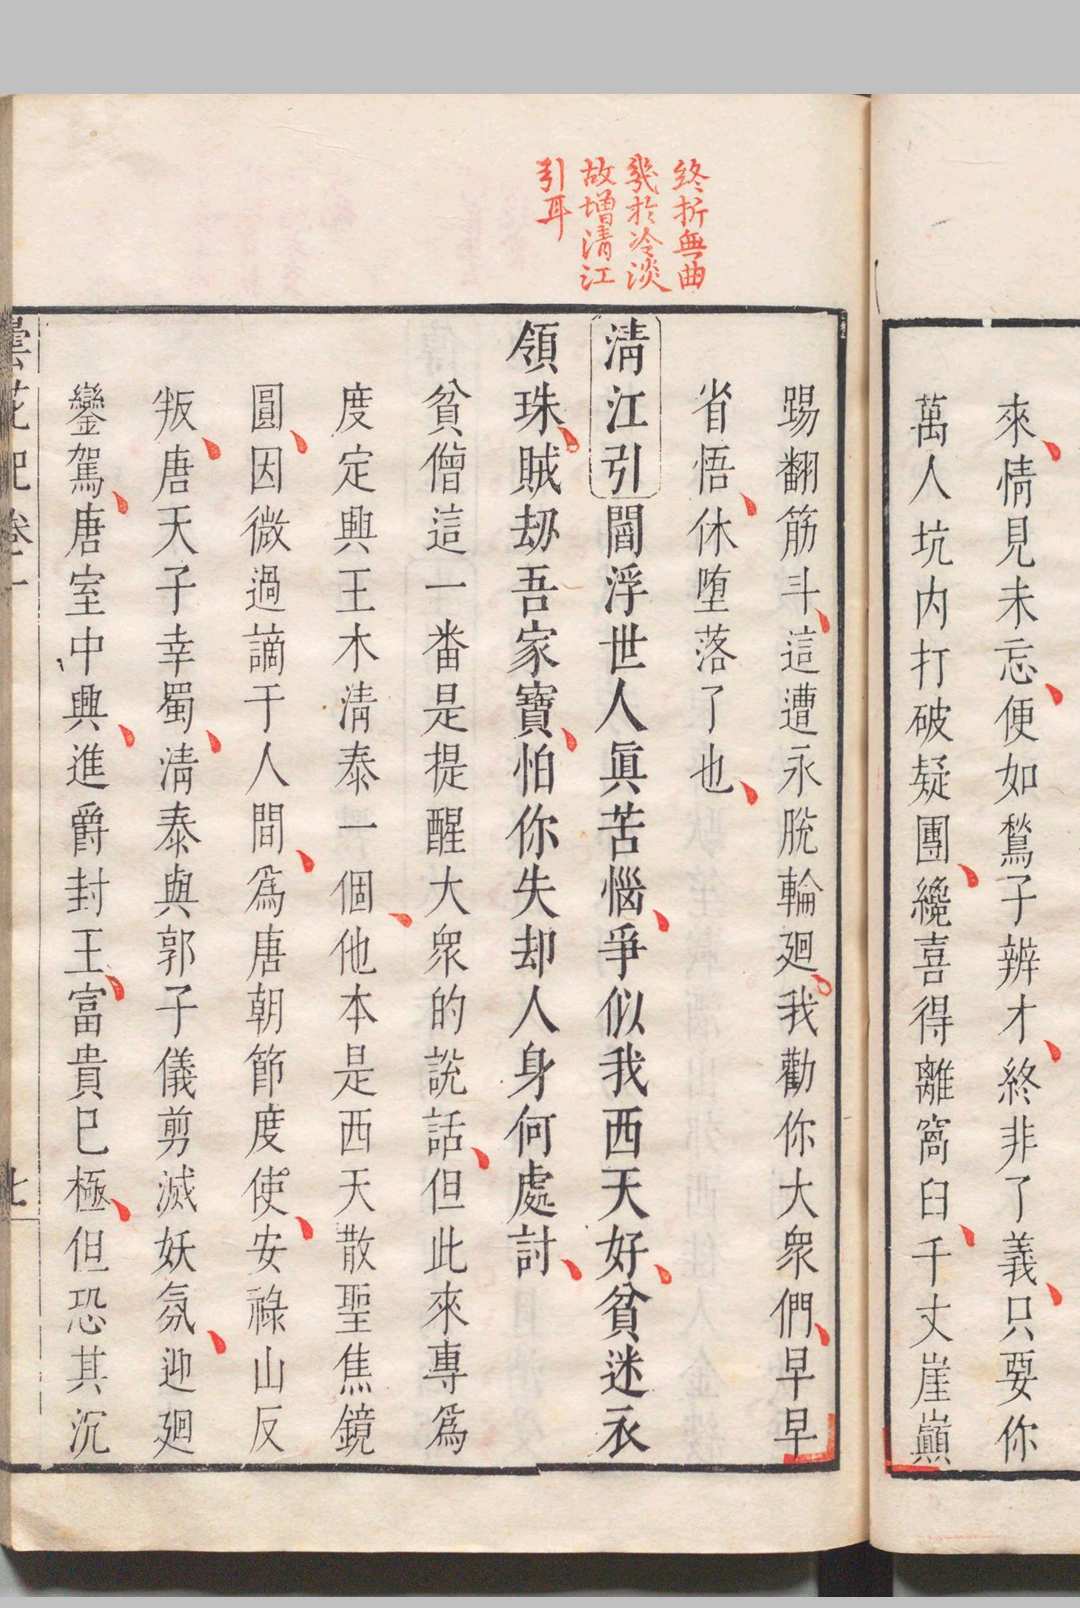 來情見未忘便如鶖子辨才終非了義只要你
萬人坑内打破疑團纔喜得離窩臼千丈崖巔
終折無曲
幾於冷淡
故增清江
引耳
踢翻筋斗這遭永脫輪廻我勸你大衆們早早
省悟休墮落了也
清江引閻浮世人眞苦惱爭似我西天好貧迷衣
領珠賊刼吾家寶怕你失却人身何處討
貧僧這一畨是提醒大衆的說話但此來專爲
度定興王木清泰一個他本是西天散聖焦鏡
圓因微過謫于人間爲唐朝節度使安祿山反
叛唐天子幸蜀清泰與郭子儀剪滅妖氛迎廻
鑾駕唐室中興進爵封王富貴已極但恐其沉
曇花記卷一 七